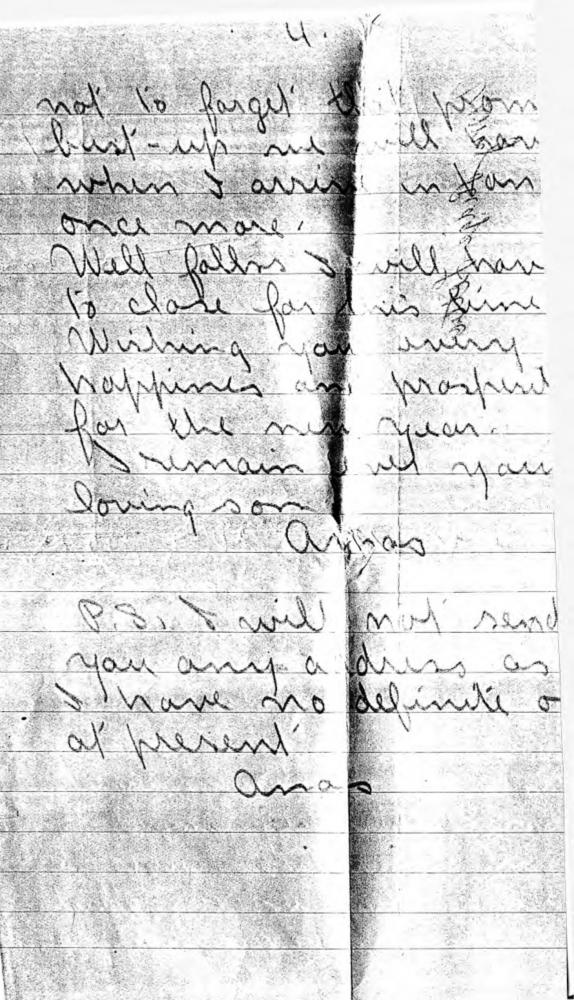 4.
not to forget the prom
bust-up we will hav
when I arrive in Van
once more.
Well folks I will hav
to close for this time
Wishing you every
happiness and prosperit
for the new year.
I remain you
loving son

P.S. I will not send
you any address as
I have no definite o
at present